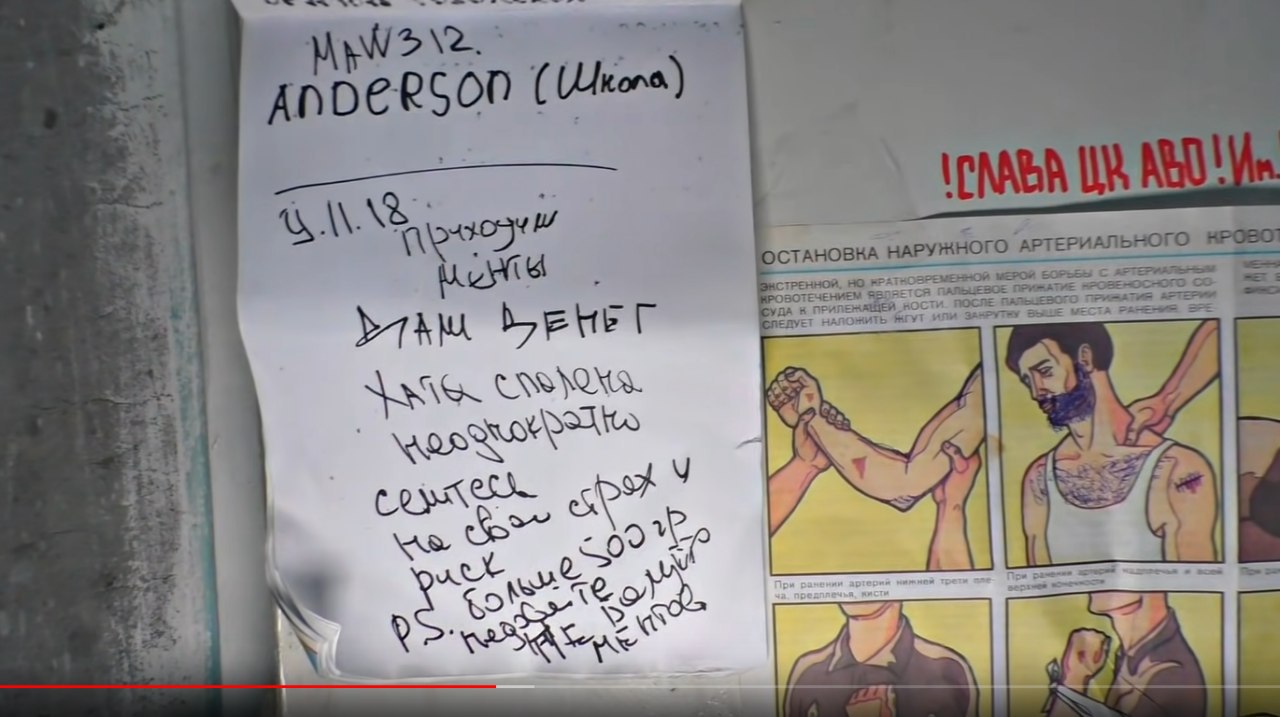 MAW312.
ANDERSON (Школа)
4.11.18
Приходили
менты
ДАЛИ ДЕНЕГ
Хата спалена
неоднократно
селитесь
на свой страх и
риск
P.S. больше 500 гр
не балуйте
ментов
!СЛАВА ЦК АВО! Им.
ОСТАНОВКА НАРУЖНОГО АРТЕРИАЛЬНОГО КРОВОТ
ЭКСТРЕННОЙ, НО КРАТКОВРЕМЕННОЙ МЕРОЙ БОРЬБЫ С АРТЕРИАЛЬНЫМ
КРОВОТЕЧЕНИЕМ ЯВЛЯЕТСЯ ПАЛЬЦЕВОЕ ПРИЖАТИЕ КРОВЕНОСНОГО СО-
СУДА К ПРИЛЕЖАЩЕЙ КОСТИ. ПОСЛЕ ПАЛЬЦЕВОГО ПРИЖАТИЯ АРТЕРИИ
СЛЕДУЕТ НАЛОЖИТЬ ЖГУТ ИЛИ ЗАКРУТКУ ВЫШЕ МЕСТА РАНЕНИЯ, ВРЕ-
При ранении артерий нижней трети пле-
ча, предплечья, кисти
При ранении артерий надплечья и всей
верхней конечности